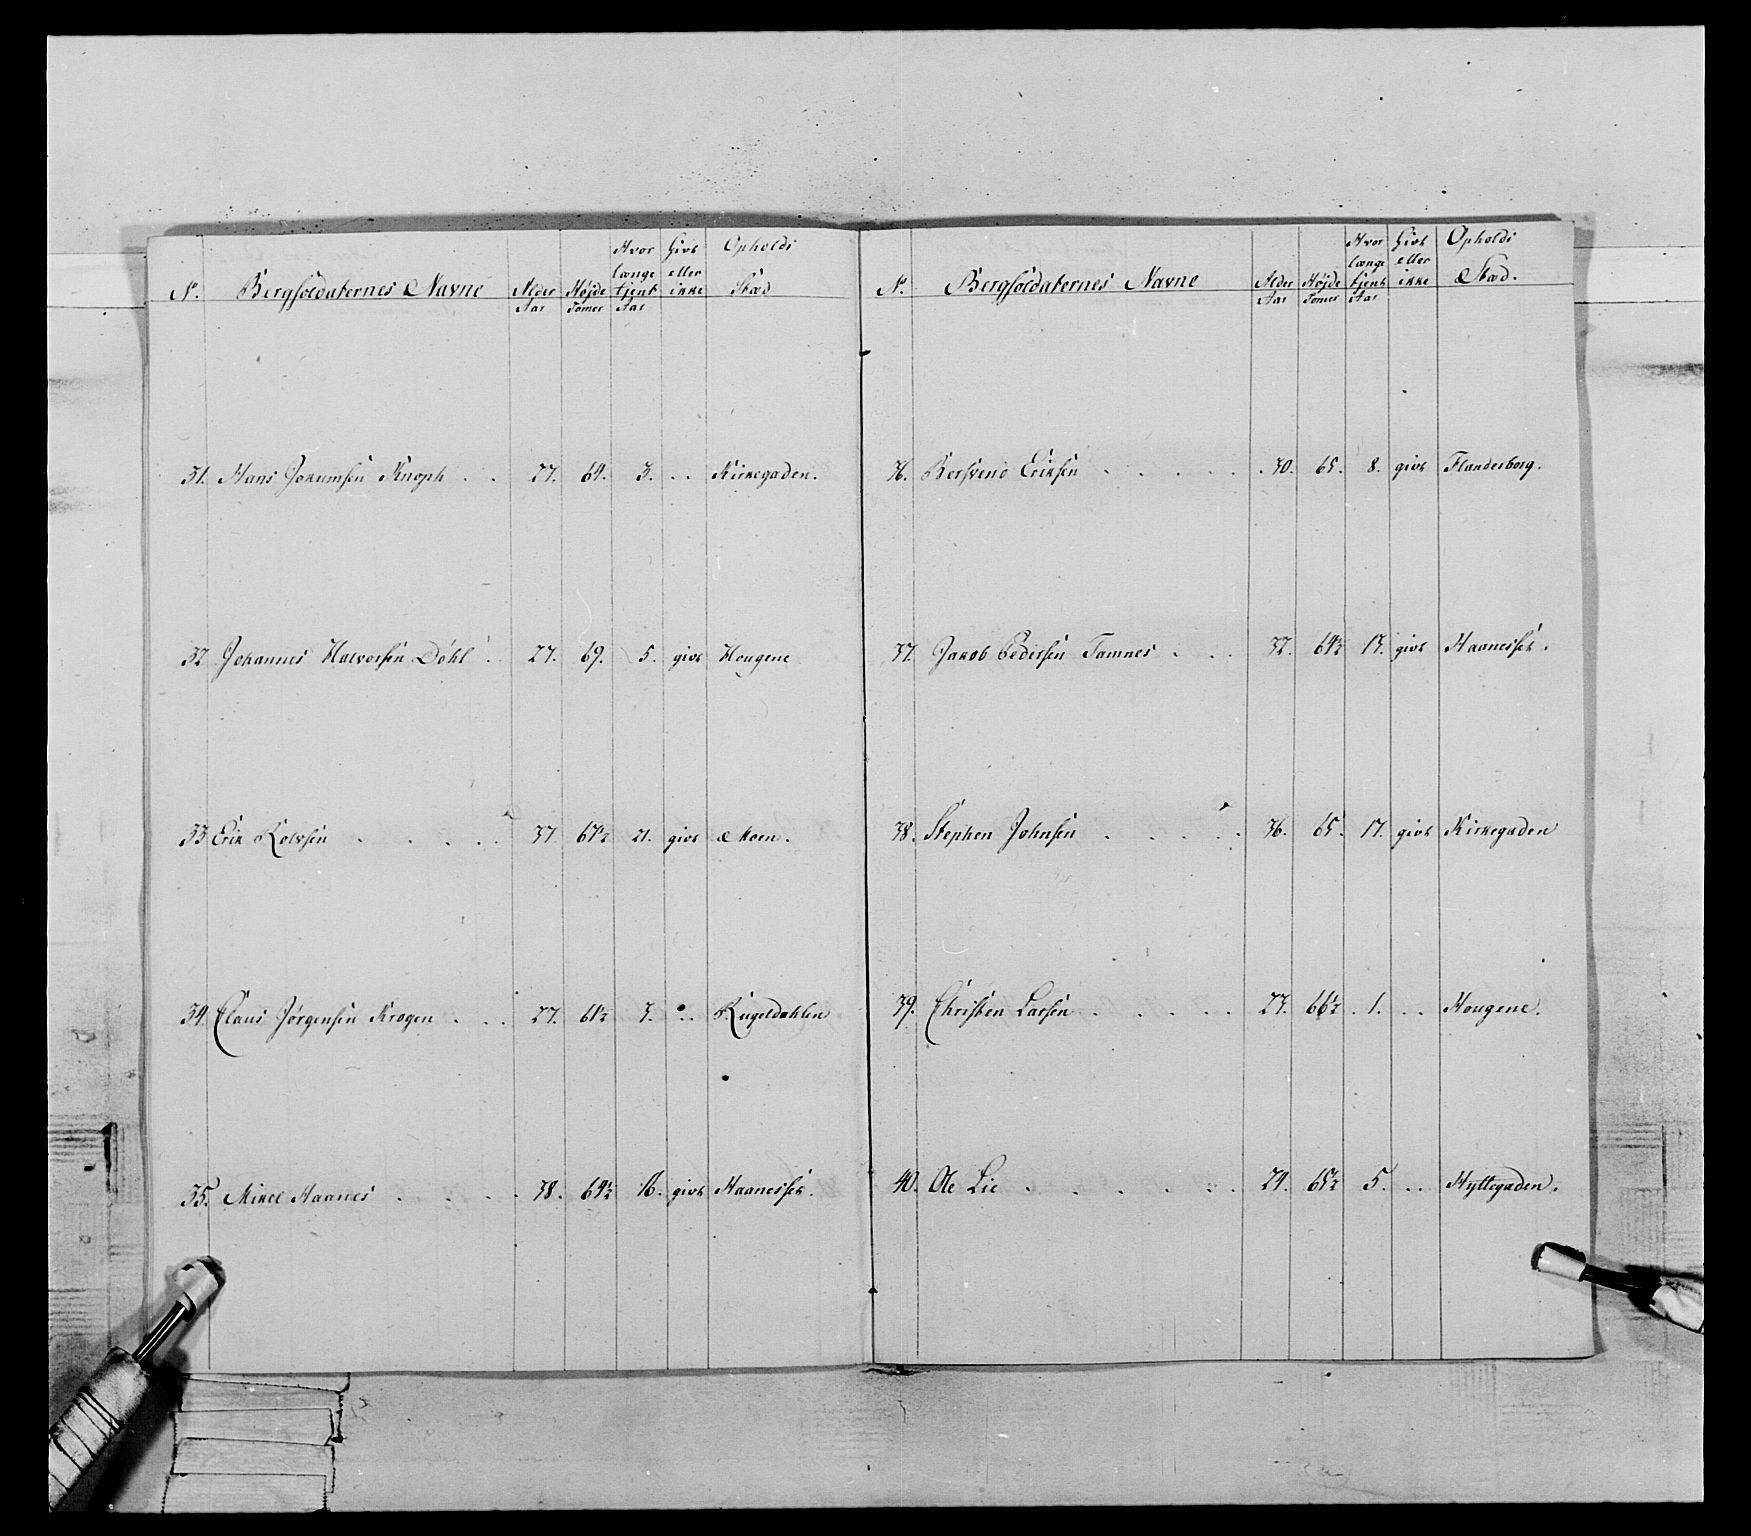 N. Bergsoldaternes Navne Alder Aar Højde Tomer Hvor længe tjent Aar Givt eller ikke Opholds Stæd
31. Hans Jokumsen Knoph . . 27. 64. 3. . . Kirkegaden.
32 Johannes Halvorsen Döhl . 27. 69. 5. givt Hougene
33 Erik Rolvsen . . . . . 37 67½ 21. givt Moen.
34. Claus Jørgensen Kragen . . . 27. 61½ 3. . . Kugeldahlen
35. Mikel Haanes . . . . 38. 64½ 16. givt Haanesset.
N. Bergsoldaternes Navne Alder Aar Højde Tomer Hvor længe tjent Aar Givt eller ikke Opholds Stæd.
36. Bersvend Eriksen . . . . . 30. 65. 8. givt Flanderborg.
37. Jakob Pedersen Tamnes . . . 32. 64½ 17. givt Haanesset.
38. Stephen Johnsen . . . . . 36. 65. 17. givt Kirkegaden
39. Christen Larsen . . . . . 23. 66½ 1. . . Hougene.
40. Ole Lie . . . . . . 24. 65½ 5. . . Hyttegaden.